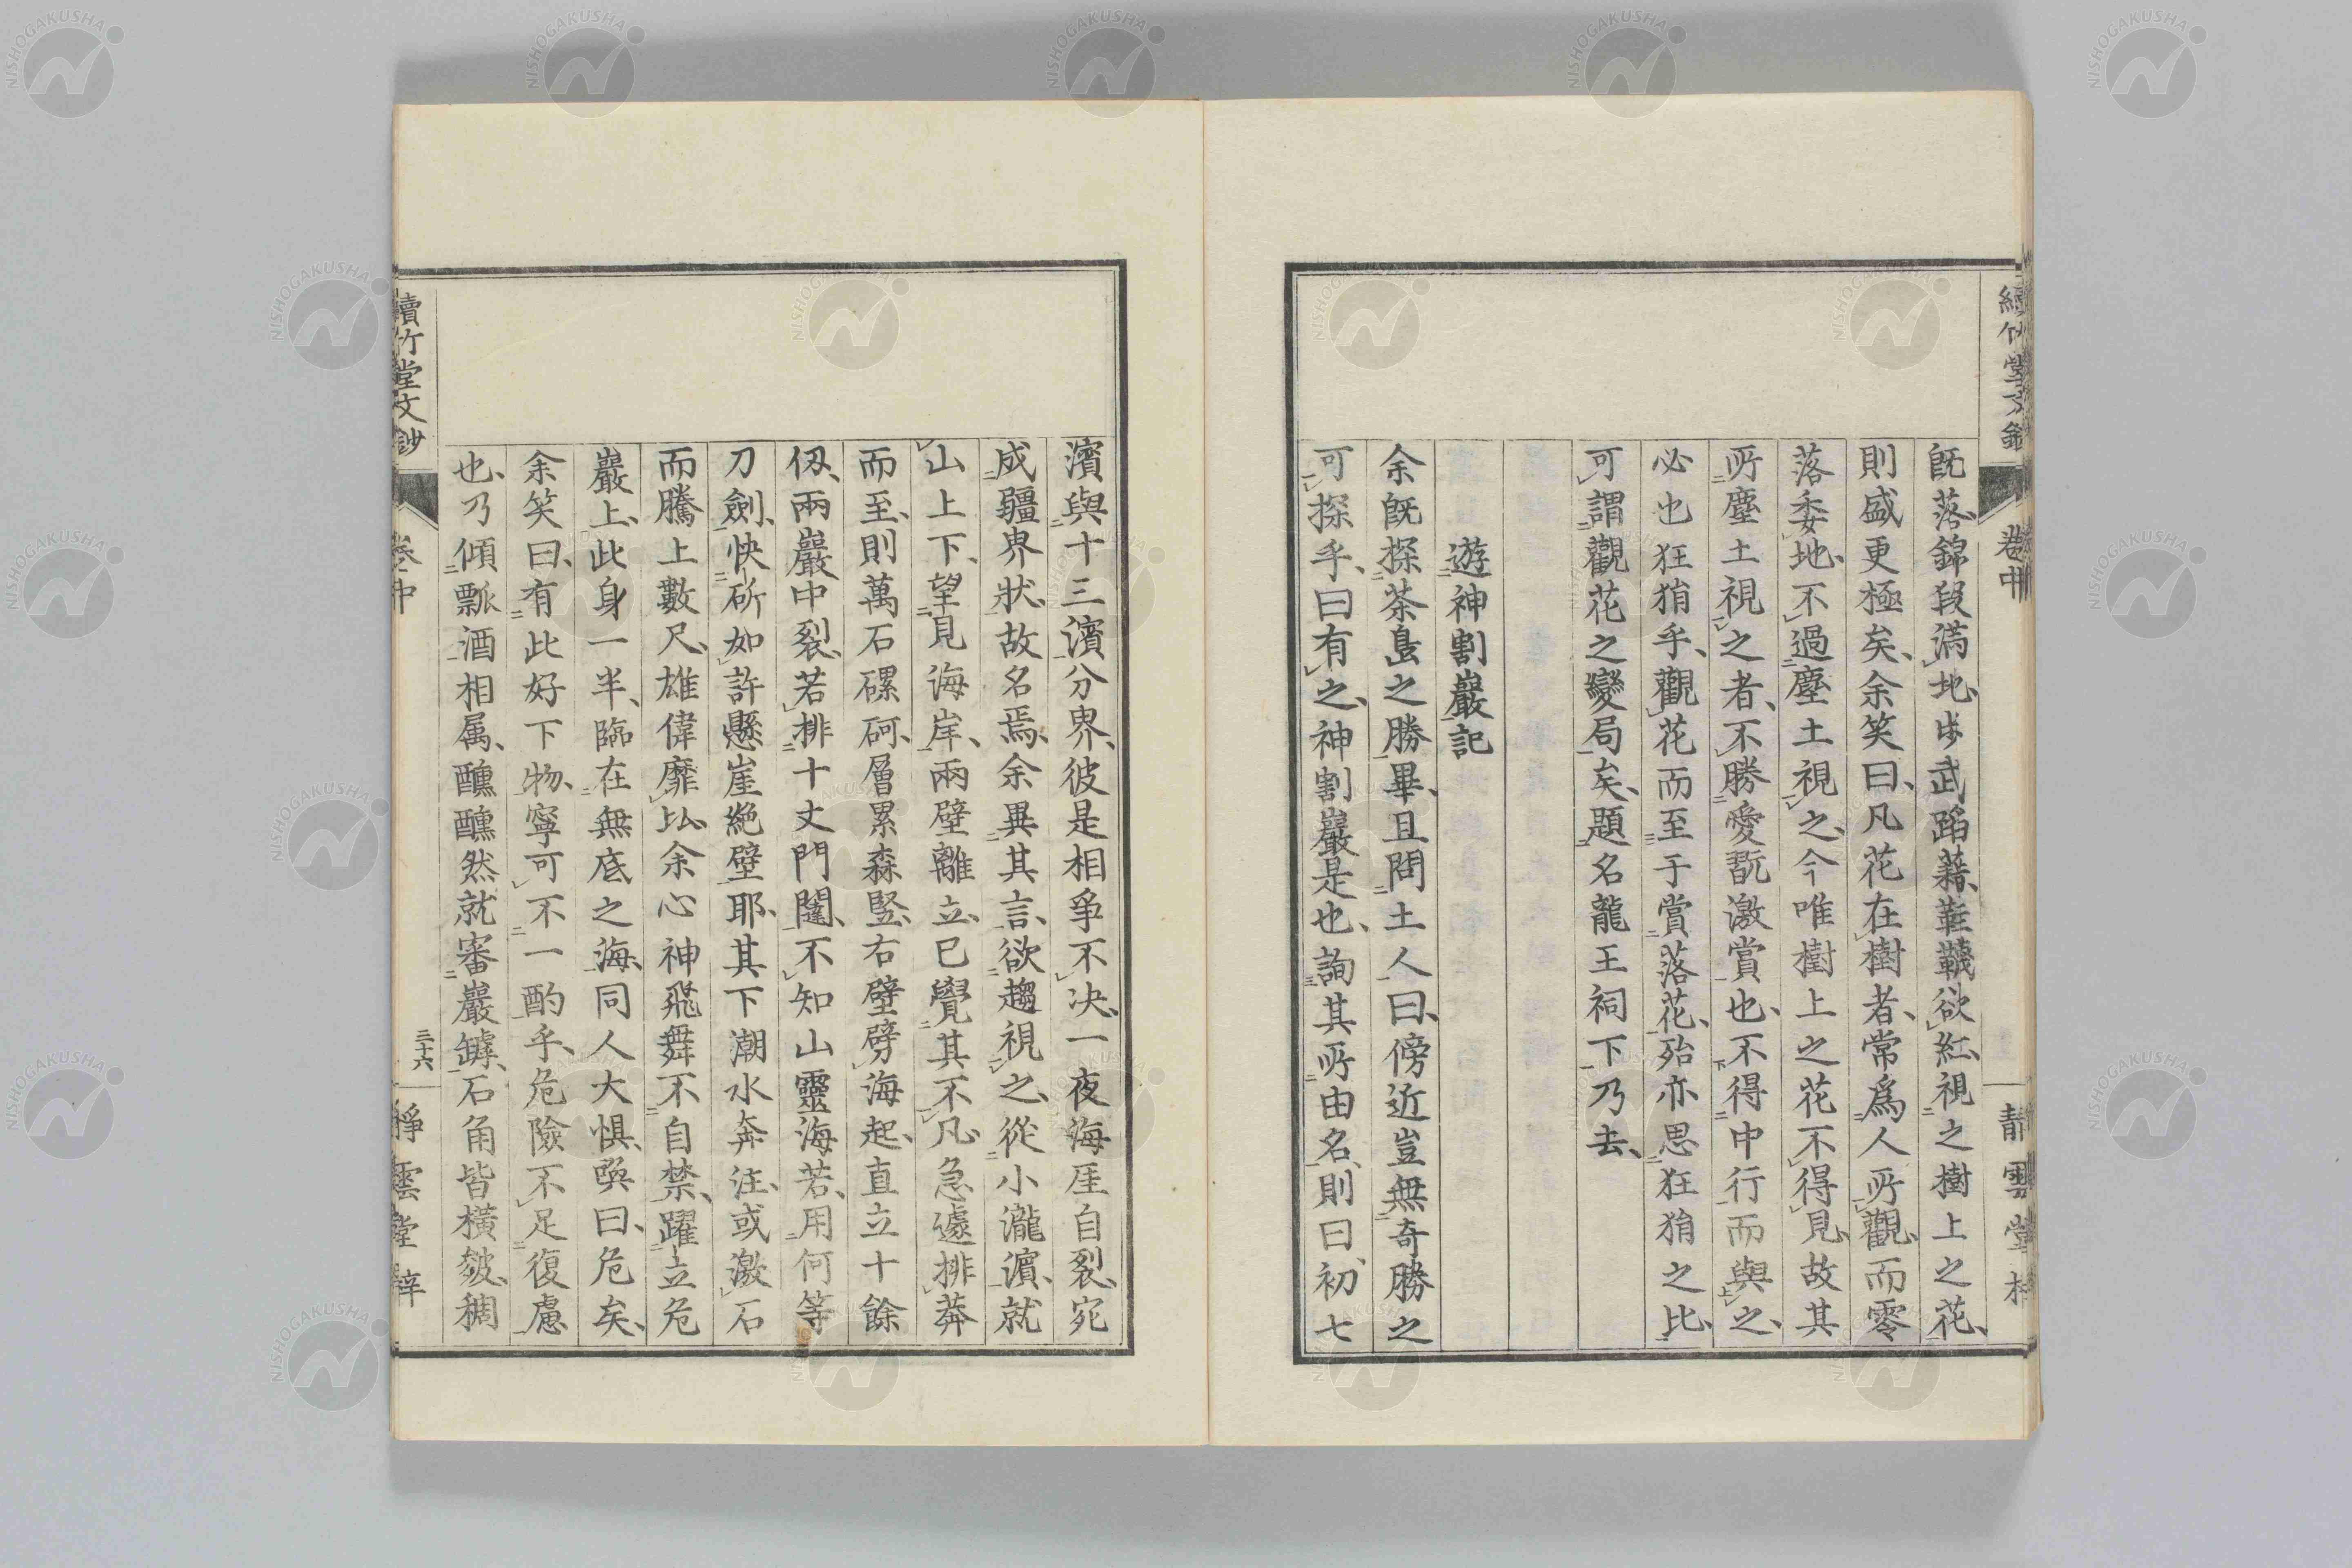 既落、錦段滿地、步武蹈藉、鞋韈欲紅、視之樹上之花、
則盛更極矣、余笑曰、凡花在樹者、常爲人所觀、而零
落委地、不過塵土視之、今唯樹上之花不得見、故其
所塵土視之者、不勝愛翫激賞也、不得中行而與之、
必也狂狷乎、觀花而至于賞落花、殆亦思狂狷之比、
可謂觀花之變局矣、題名龍王祠下、乃去、
遊神割巖記
余既探茶島之勝畢、且問土人曰、傍近豈無奇勝之
可探乎、曰有之、神割巖是也、詢其所由名、則曰、初七
濱與十三濱分界、彼是相爭不决、一夜海厓自裂、宛
成疆界狀、故名焉、余異其言、欲趨視之、從小瀧濵、就
山上下、望見海岸、兩壁離立、已覺其不凡、急遽排莽
而至、則萬石磥砢、層累森竪、右壁劈海起、直立十餘
仭、兩巖中裂、若排十丈門闥、不知山靈海若、用何等
刀劍、快斫如許懸崖絶壁耶、其下潮水奔注、或激石
而騰上數尺、雄偉靡比、余心神飛舞不自禁、躍立危
巖上、此身一半、臨在無底之海、同人大惧、㗛曰、危矣、
余笑曰、有此好下物、寧可不一酌乎、危險不足復慮
也、乃傾瓢酒相属、醺醺然就審巖罅、石角皆橫皴、稠
續竹堂文鈔
卷中
三十六
靜雲堂梓